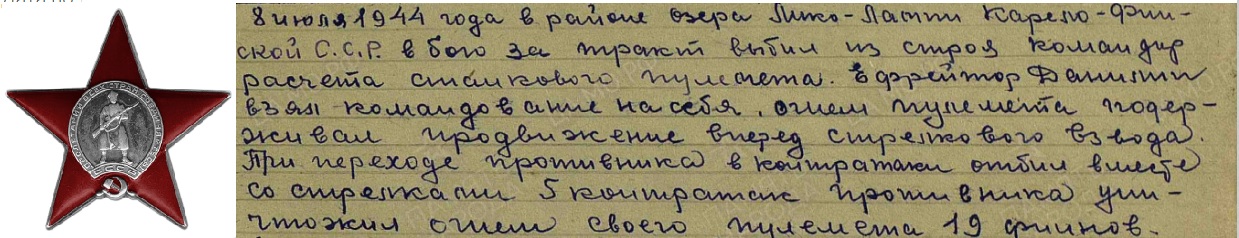 8 июля 1944 года в районе озера Лико-Лампи Карело-Фин-
ской С.С.Р. в бою за тракт выбил из строя командир
расчета станкового пулемета. Ефрейтор Данилин
взял командование на себя, огнем пулемета подер-
живал продвижение вперед стрелкового взвода.
При переходе противника в контратаки отбил вместе
со стрелками 5 контратак противника уни-
чтожил огнем своего пулемета 19 финнов.
ПРОЛЕТАРИИ ВСЕХ СТРАН СОЕДИНЯЙТЕСЬ
СССР